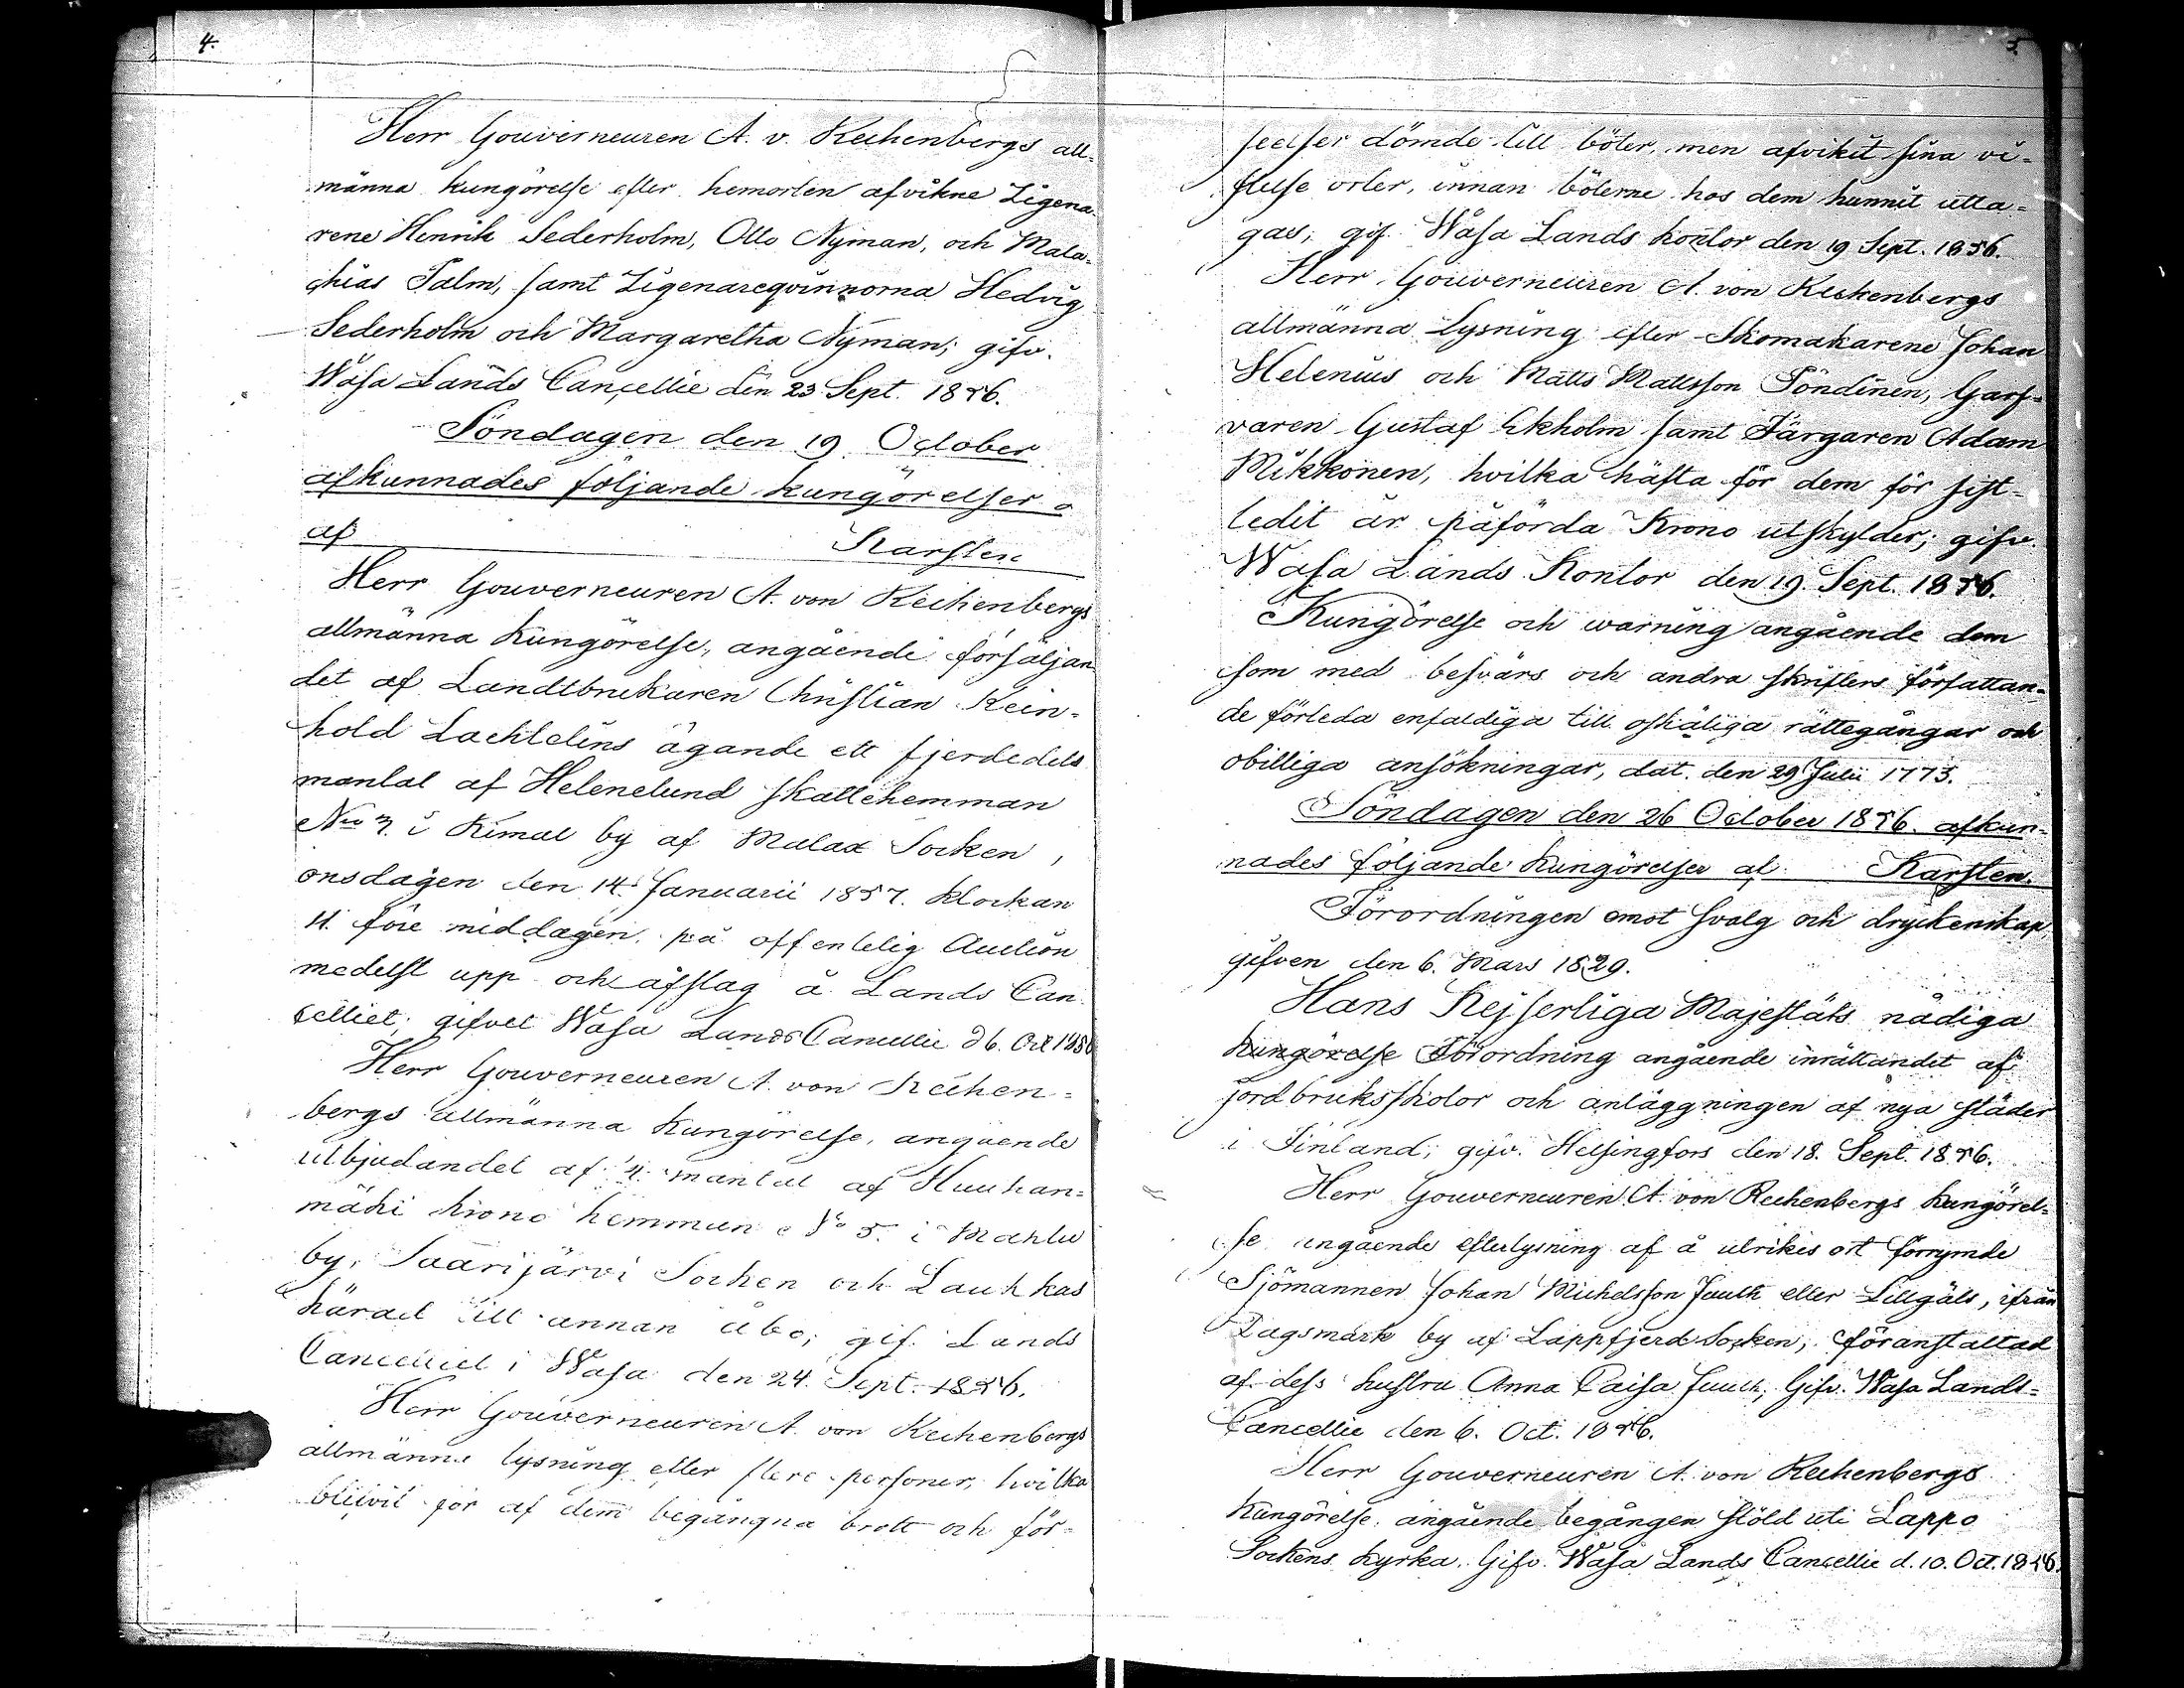 4.
Herr Gouverneuren A. v. Rechenbergs all-
männa kungörelse efter hemorten afvikne Zigena-
rene Henrik Sederholm, Otto Nyman, och Mala-
chias Palm, samt Zigenareqvinnorna Hedvig
Sederholm och Margaretha Nyman; gifv.
Wasa Lands Cancellie den 23 Sept. 1856.
Söndagen den 19 October
afkunnades följande kungörelser
af Karsten
Herr Gouverneuren A. von Rechenbergs
allmänna Kungörelse, angående försäljan
det af Landtbrukaren Christian Rein-
hold Lachtelins ägande ett fjerdedels
mantal af Helenelund skattehemman
No 7. i Kimal by af Malax Socken,
onsdagen den 14 Januarii 1857. klockan
11. före middagen, på offentelig Auction
medelst upp och afslag å Lands Can
celliet; gifvet Wasa Lands Cancellie d 6. Oct 1856
Herr Gouverneuren A. von Rechen-
bergs allmänna Kungörelse, angående
utbjudandet af mantal af Huuhan-
mäki krono hemman No 5. i Mahlu
by, Saarijärvi Socken och Laukkas
härad till annan åbo; gif. Lands
Cancelliet i Wasa den 24. Sept. 1856.
Herr Gouverneuren A. von Rechenbergs
allmänna lysning efter flere personer, hvilka
blifvit för af dem begångna brott och för-
5.
seelser dömde till böter, men afvikit sina vi-
stelse orter, innan böterne hos dem hunnit utta-
gas; gif. Wasa Lands kontor den 19 Sept. 1856.
Herr Gouverneuren A. von Rechenbergs
allmänna Lysning efter Skomakarene Johan
Helenius och Matts Mattsson Pöndinen, Garf-
varen Gustaf Ekholm samt Färgaren Adam
Mikkonen, hvilka häfta för dem för sist-
ledit år påförda Krono utskylder; gifv.
Wasa Lands Kontor den 19. Sept. 1856.
Kungörelse och warning angående dem
som med besvärs och andra skrifters författan-
de förleda enfaldiga till oskäliga rättegångar och
obilliga ansökningar, dat. den 29 Julii 1773.
Söndagen den 26 October 1856. afkun-
nades följande Kungörelser af Karsten.
Förordningen emot svalg och dryckenskap,
gifven den 6. Mars 1829.
Hans Kejserliga Majestäts nådiga
Kungörelse Förordning angående inrättandet af
jordbruksskolor och anläggningen af nya städer
i Finland; gifv. Helsingfors den 18. Sept. 1856.
Herr Gouverneuren A. von Rechenbergs kungörel-
se angående efterlysning af å utrikes ort förrymde
Sjömannen Johan Michelsson Juuth eller Lillgäls, ifrån
Dagsmark by af Lappfjerd Socken, föranstaltad
af dess hustru Anna Caisa Juuth; Gifv. Wasa Lands-
Cancellie den 6. Oct. 1856.
Herr Gouverneuren A. von Rechenbergs
Kungörelse, angående begången stöld uti Lappo
Sockens kyrka. Gifv. Wasa Lands Cancellie d. 10. Oct. 1856.